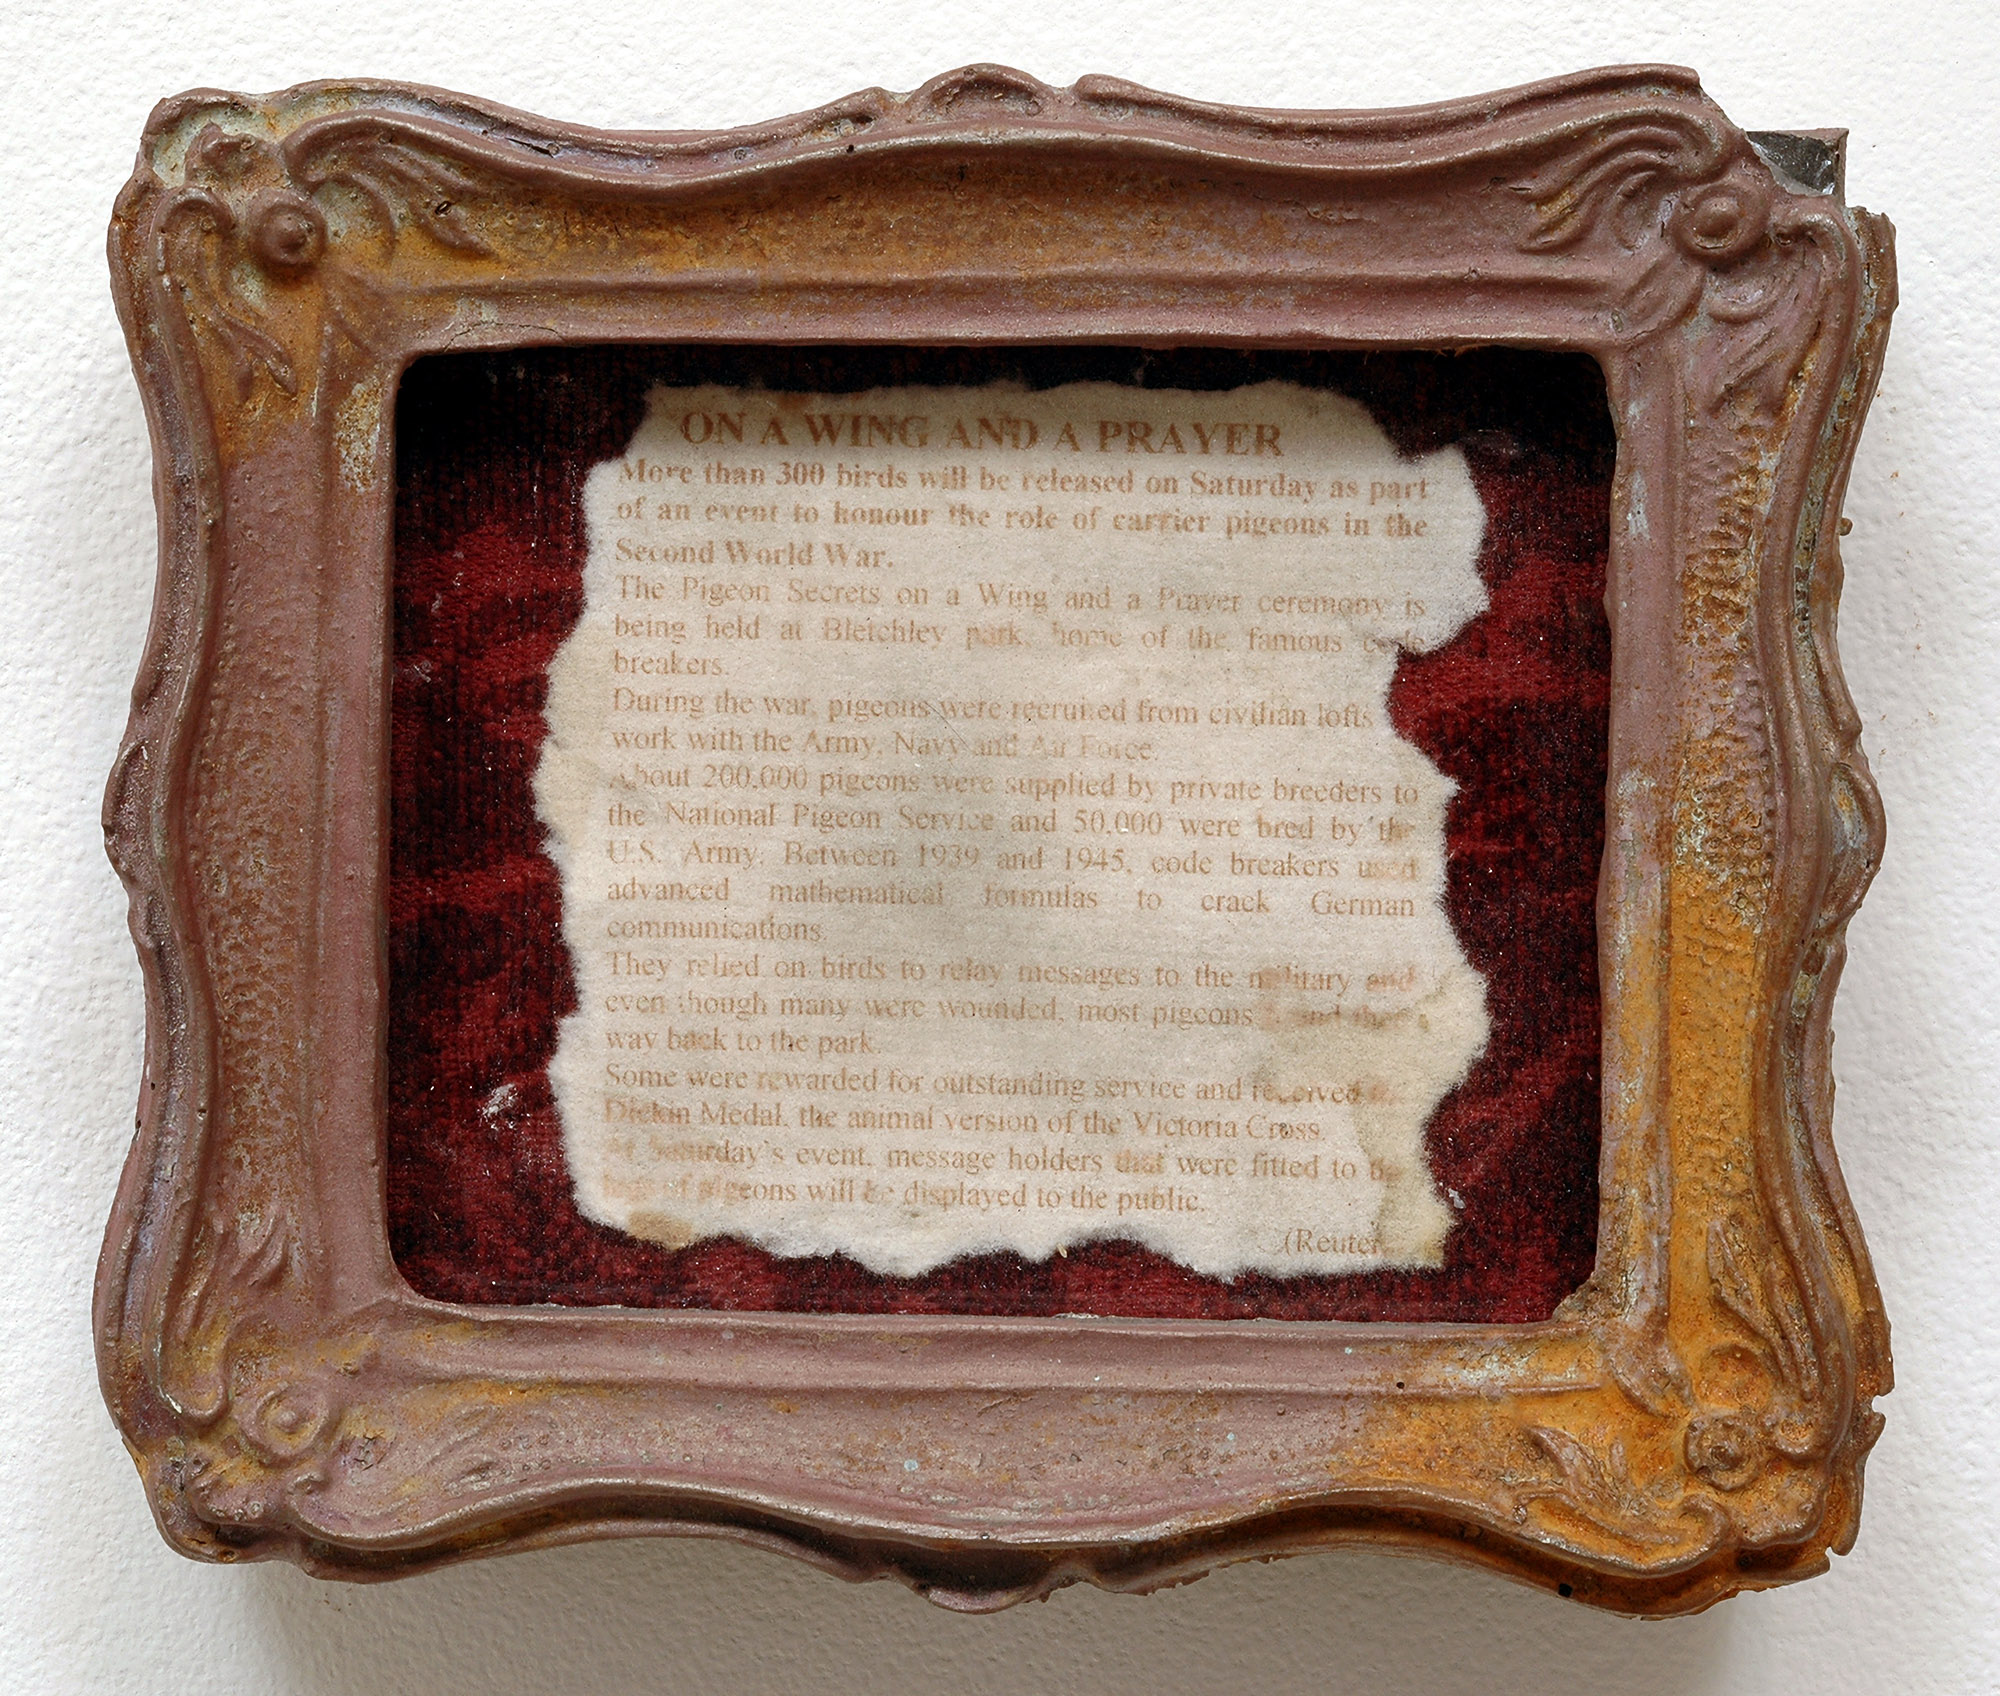 ON A WING AND A PRAYER
More than 300 birds will be released on Saturday as part
of an event to honour the role of carrier pigeons in the
Second World War.
The Pigeon Secrets on a Wing and a Prayer ceremony is
being held at Bletchley park, home of the famous code
breakers.
During the war, pigeons were recruited from civilian lofts
work with the Army, Navy and Air Force.
About 200,000 pigeons were supplied by private breeders to
the National Pigeon Service and 50,000 were bred by the
U.S. Army. Between 1939 and 1945, code breakers used
advanced mathematical formulas to crack German
communications.
They relied on birds to relay messages to the military and
even though many were wounded, most pigeons
way back to the park.
Some were rewarded for outstanding service and received
Dickin Medal, the animal version of the Victoria Cross.
At Saturday's event, message holders that were fitted to
of pigeons will be displayed to the public.
(Reuter